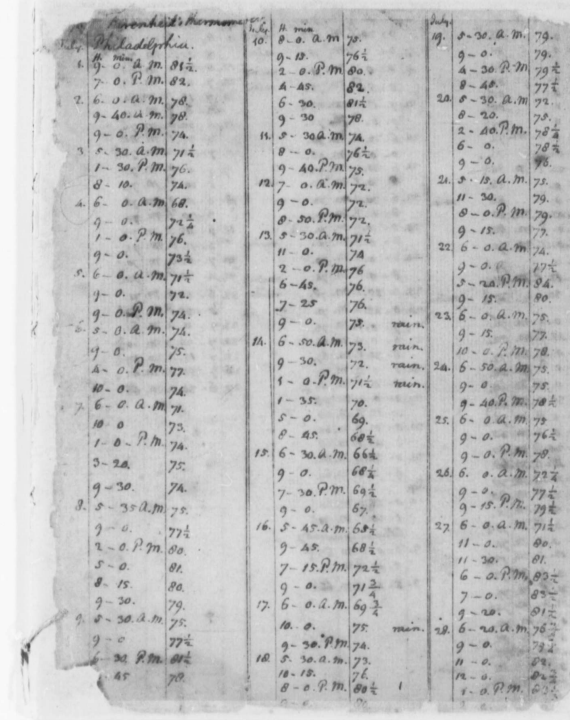 Farenheit's thermom
July. Philadelphia.
H. min
1. 9 - 0. A.M. 81½.
7 - 0. P.M. 82.
2. 6 - 0. A.M. 78.
9 - 40. A.M. 78.
9 - 0. P.M. 74.
3. 5 - 30. A.M. 71½
1 - 30. P.M. 76.
8 - 10. 74.
4. 6 - 0. A.M. 68.
9 - 0. 72¼
1 - 0. P.M. 76.
9 - 0. 73½
5. 6 - 0. A.M. 71½
9 - 0. 72.
9 - 0. P.M. 74.
6. 5 - 0. A.M. 74.
9 - 0. 75.
4 - 0. P.M. 77.
10 - 0. 74.
7. 6 - 0. A.M. 71.
10 - 0 73.
1 - 0 - P.M. 74.
3 - 20. 75.
9 - 30. 74.
8. 5 - 35 A.M. 75.
9 - 0. 77½
2 - 0. P.M. 80.
5 - 0. 81.
8 - 15. 80.
9 - 30. 79.
9. 5 - 30. A.M. 75.
9 - 0 77½
30. P.M. 81½
45 78.
July. H. min
10. 8 - 0. A.M 75.
9 - 15. 76½
2 - 0. P.M 80.
4 - 45. 82.
6 - 30. 81½
9 - 30 78.
11. 5 - 30 A.M 74.
8 - 0. 76½
9 - 40. P.M 75.
12. 7 - 0. A.M 72.
9 - 0. 72.
8 - 50. P.M 72.
13. 5 - 30. A.M. 71½
11 - 0. 74
2 - 0. P.M 76
6 - 45. 76.
7 - 25 76.
9 - 0. 75. rain.
14. 6 - 50. A.M. 73. rain.
9 - 30. 72. rain.
1 - 0. P.M. 71½ rain.
1 - 35. 70.
5 - 0. 69.
8 - 45. 68½
15. 6 - 30. A.M. 66½
9 - 0. 68¼
7 - 30. P.M. 69½
9 - 0. 67.
16. 5 - 45. A.M. 65½
9 - 45. 68½
7 - 15. P.M. 72½
9 - 0. 71¾
17. 6 - 0. A.M. 69¾
10. 0. 75. rain.
9 - 30. P.M 74.
18. 5 - 30. A.M. 73.
10 - 15. 76.
8 - 0. P.M. 80½
July.
19. 5 - 30. A.M. 79.
9 - 0. 79.
4 - 30. P.M 79½
8 - 45. 77½
20. 5 - 30 A.M 72.
8 - 20. 75.
2 - 40. P.M. 78¼
6 - 0. 78½
9 - 0. 76.
21. 5 - 15. A.M. 75.
11 - 30. 79.
8 - 0. P.M. 79.
9 - 15. 77.
22. 6 - 0 A.M 74.
9 - 0. 77½
5 - 20. P.M 84.
9 - 15. 80.
23. 6 - 0. A.M. 75.
9 - 15. 77.
10 - 0. P.M 78.
24. 6 - 50. A.M 75.
9 - 0 75.
9 - 40. P.M. 78½
25. 6 - 0. A.M 75
9 - 0. 76½
9 - 0. P.M 78.
26. 6. 0. A.M 72¼
9 - 0. 77½
9 - 15. P.M 79½
27. 6 - 0 A.M 71½
11 - 0. 80.
11 - 30. 81.
6 - 0. P.M. 83½
7 - 0. 83½
9 - 20. 81½
28. 6 - 20. A.M 76
9 - 0. 79½
11 - 0. 82.
12 - 0. 82.
1 - 0. P.M